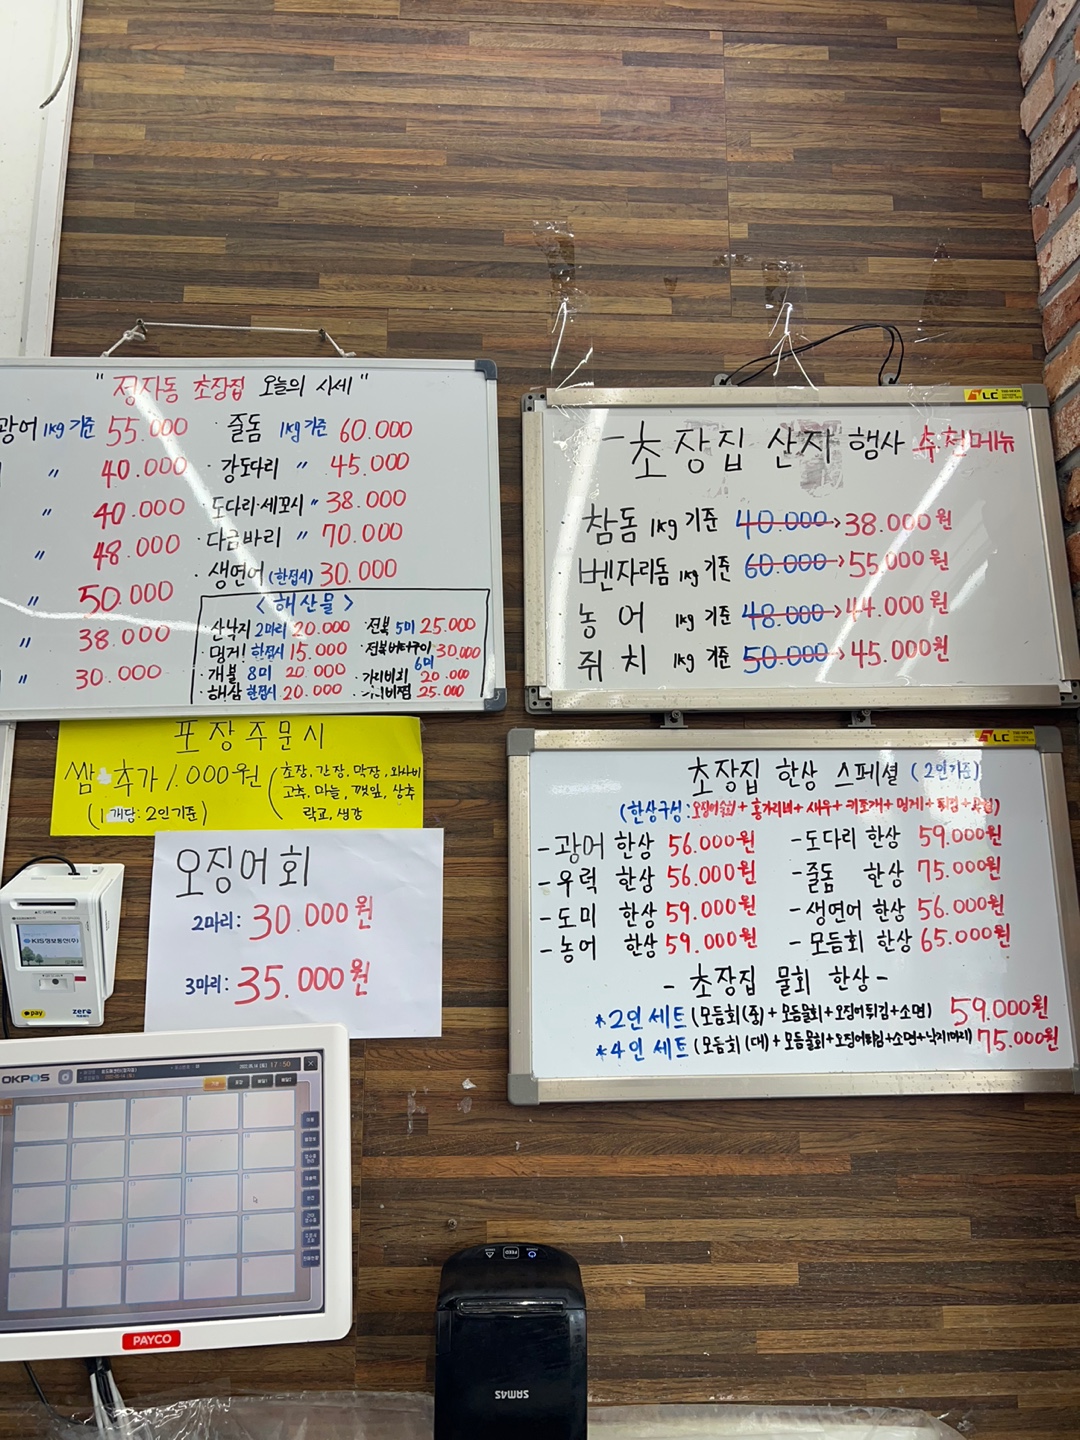 " 정자동 초장집 오늘의 시세 "
광어 1kg 기준 55.000
" 40.000
" 40.000
" 48.000
" 50.000
" 38.000
" 30.000
· 줄돔 1kg 기준 60.000
· 강도다리 " 45.000
· 도다리·세꼬시 " 38.000
· 다금바리 " 70.000
· 생연어 (한접시) 30.000
< 해산물 >
· 산낙지 2마리 20.000
· 멍게! 한접시 15.000
· 개불 8미 20.000
· 해삼 한접시 20.000
· 전복 5미 25.000
· 전복버터구이 6미 30.000
· 가리비회 20.000
25.000
초장집 산지 행사 추천메뉴
참돔 1kg 기준 40.000 → 38.000원
벤자리돔 1kg 기준 60.000 → 55.000원
농어 1kg 기준 48.000 → 44.000원
쥐치 1kg 기준 50.000 → 45.000원
포장주문시
쌈 추가 1.000원
(1개당: 2인기준)
(초장, 간장, 막장, 와사비
고추, 마늘, 깻잎, 상추
락교, 생강
오징어회
2마리: 30.000원
3마리: 35.000원
초장집 한상 스페셜 (2인기준)
(한상구성: + 홍가리비 + 새우 + 키조개 + 멍게 + 튀김 +
- 광어 한상 56.000원
- 우럭 한상 56.000원
- 도미 한상 59.000원
- 농어 한상 59.000원
- 도다리 한상 59.000원
- 줄돔 한상 75.000원
- 생연어 한상 56.000원
- 모듬회 한상 65.000원
- 초장집 물회 한상 -
*2인 세트 (모듬회(중) + 모듬물회 + 오징어튀김 + 소면) 59.000원
*4인 세트 (모듬회(대) + 모듬물회 + 오징어튀김 + 소면 + 낙지1마리) 75.000원
LC
LC
KIS정보통신(주)
pay
zero
OKPOS
17:50
PAYCO
FEED
SAM4S